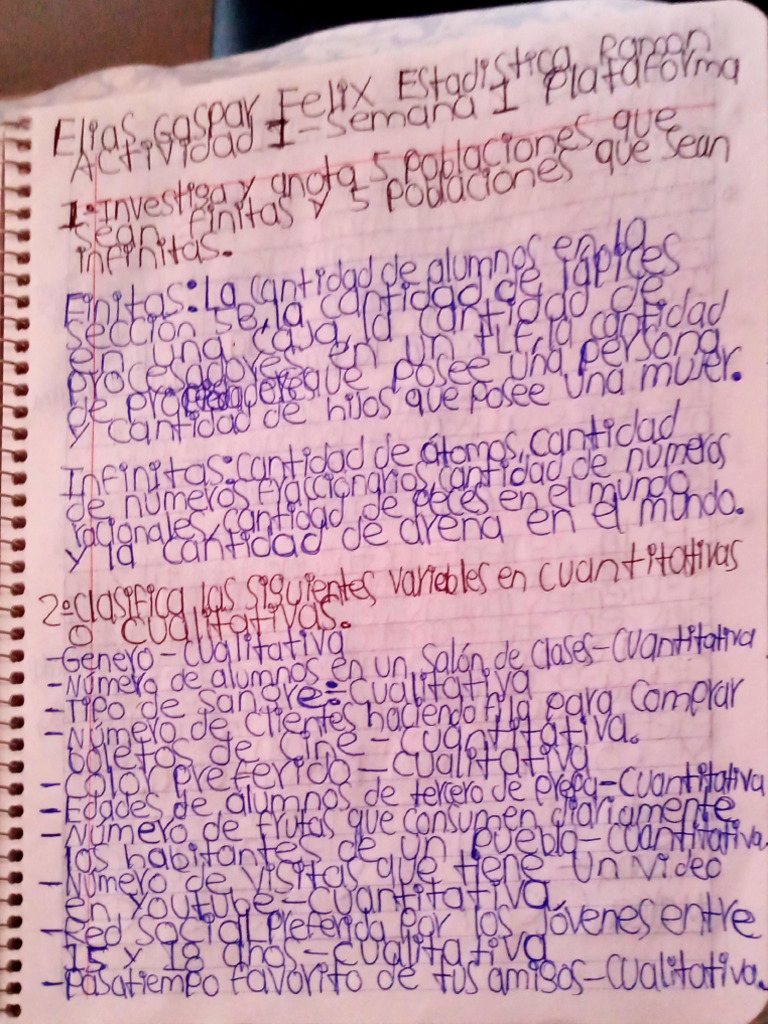 Elias Gaspar Felix Estadistica Ramon
Actividad 1-Semana 1 Plataforma
1º Investiga y anota 5 poblaciones que
sean finitas y 5 poblaciones que sean
infinitas.
Finitas: La cantidad de alumnos en la
sección 5B, la cantidad de lápices
en una caja, la cantidad de
procesadores en un TLF, la cantidad
de que posee una persona
y cantidad de hijos que posee una mujer.
Infinitas: cantidad de átomos, cantidad
de números fraccionarios, cantidad de números
racionales, cantidad de peces en el mundo
y la cantidad de arena en el mundo.
2º Clasifica las siguientes variables en cuantitativas
o cualitativas.
-Genero-cualitativa
-Número de alumnos en un salón de clases-cuantitativa
-Tipo de sangre-cualitativa
-Número de clientes haciendo fila para comprar
boletos de cine-cuantitativa.
-Color preferido-cualitativa
-Edades de alumnos de tercero de prepa-cuantitativa
-Número de frutas que consumen diariamente
los habitantes de un pueblo-cuantitativa.
-Número de visitas que tiene un video
en youtube-cuantitativa
-Red social preferida por los jóvenes entre
15 y 18 años-cualitativa
-Pasatiempo favorito de tus amigos-cualitativa.